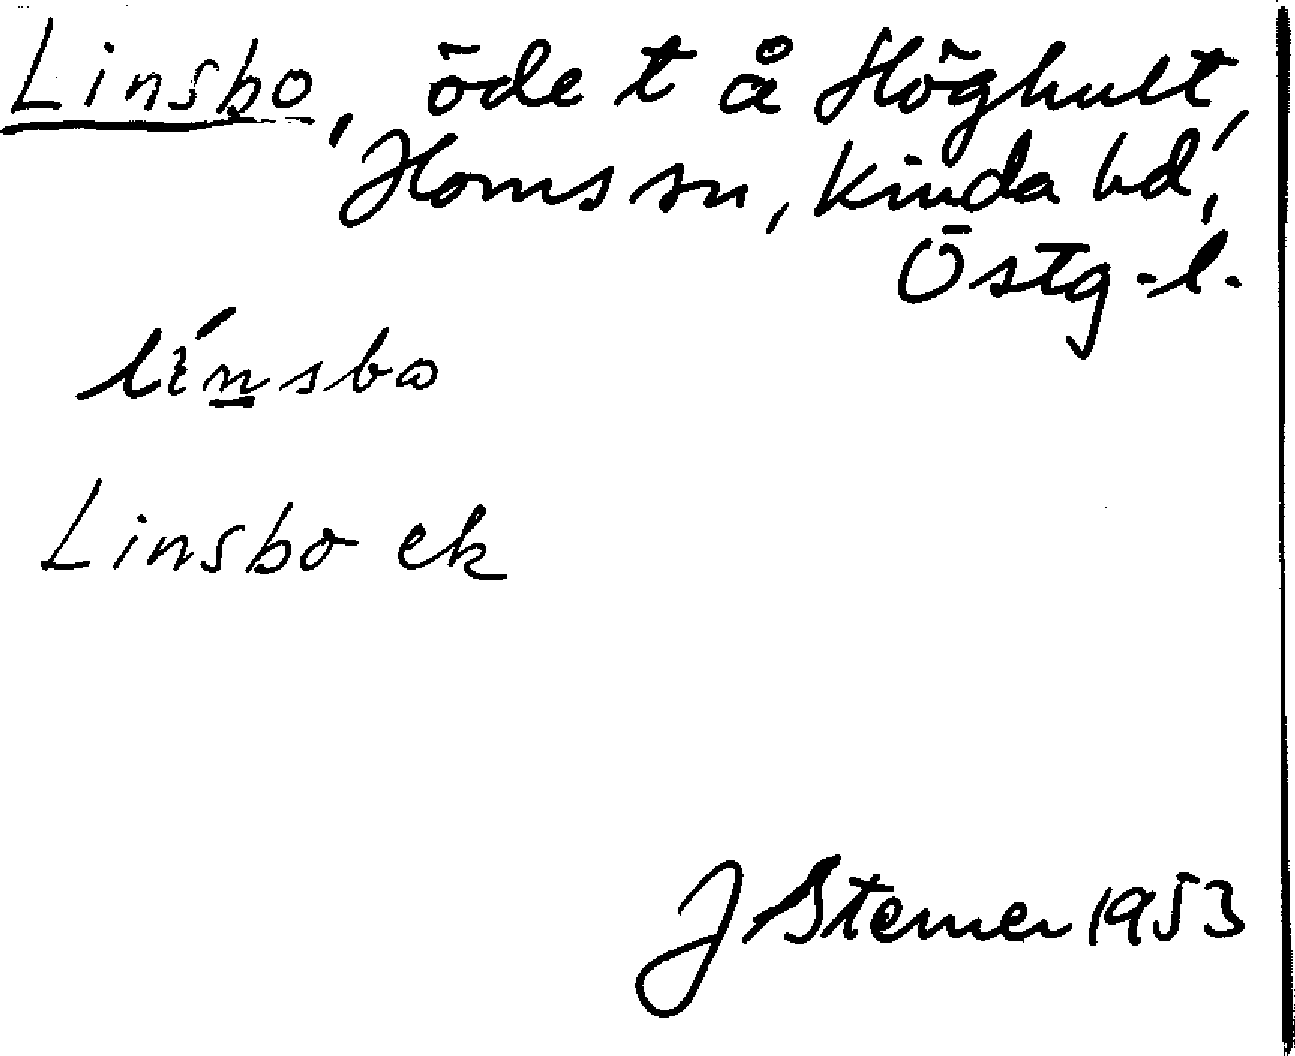 Linsbo, öde t å Höghult,
Homs sn, Kinda hd,
Östg-l.
línsbo
Linsbo ek
J Sterner 1953